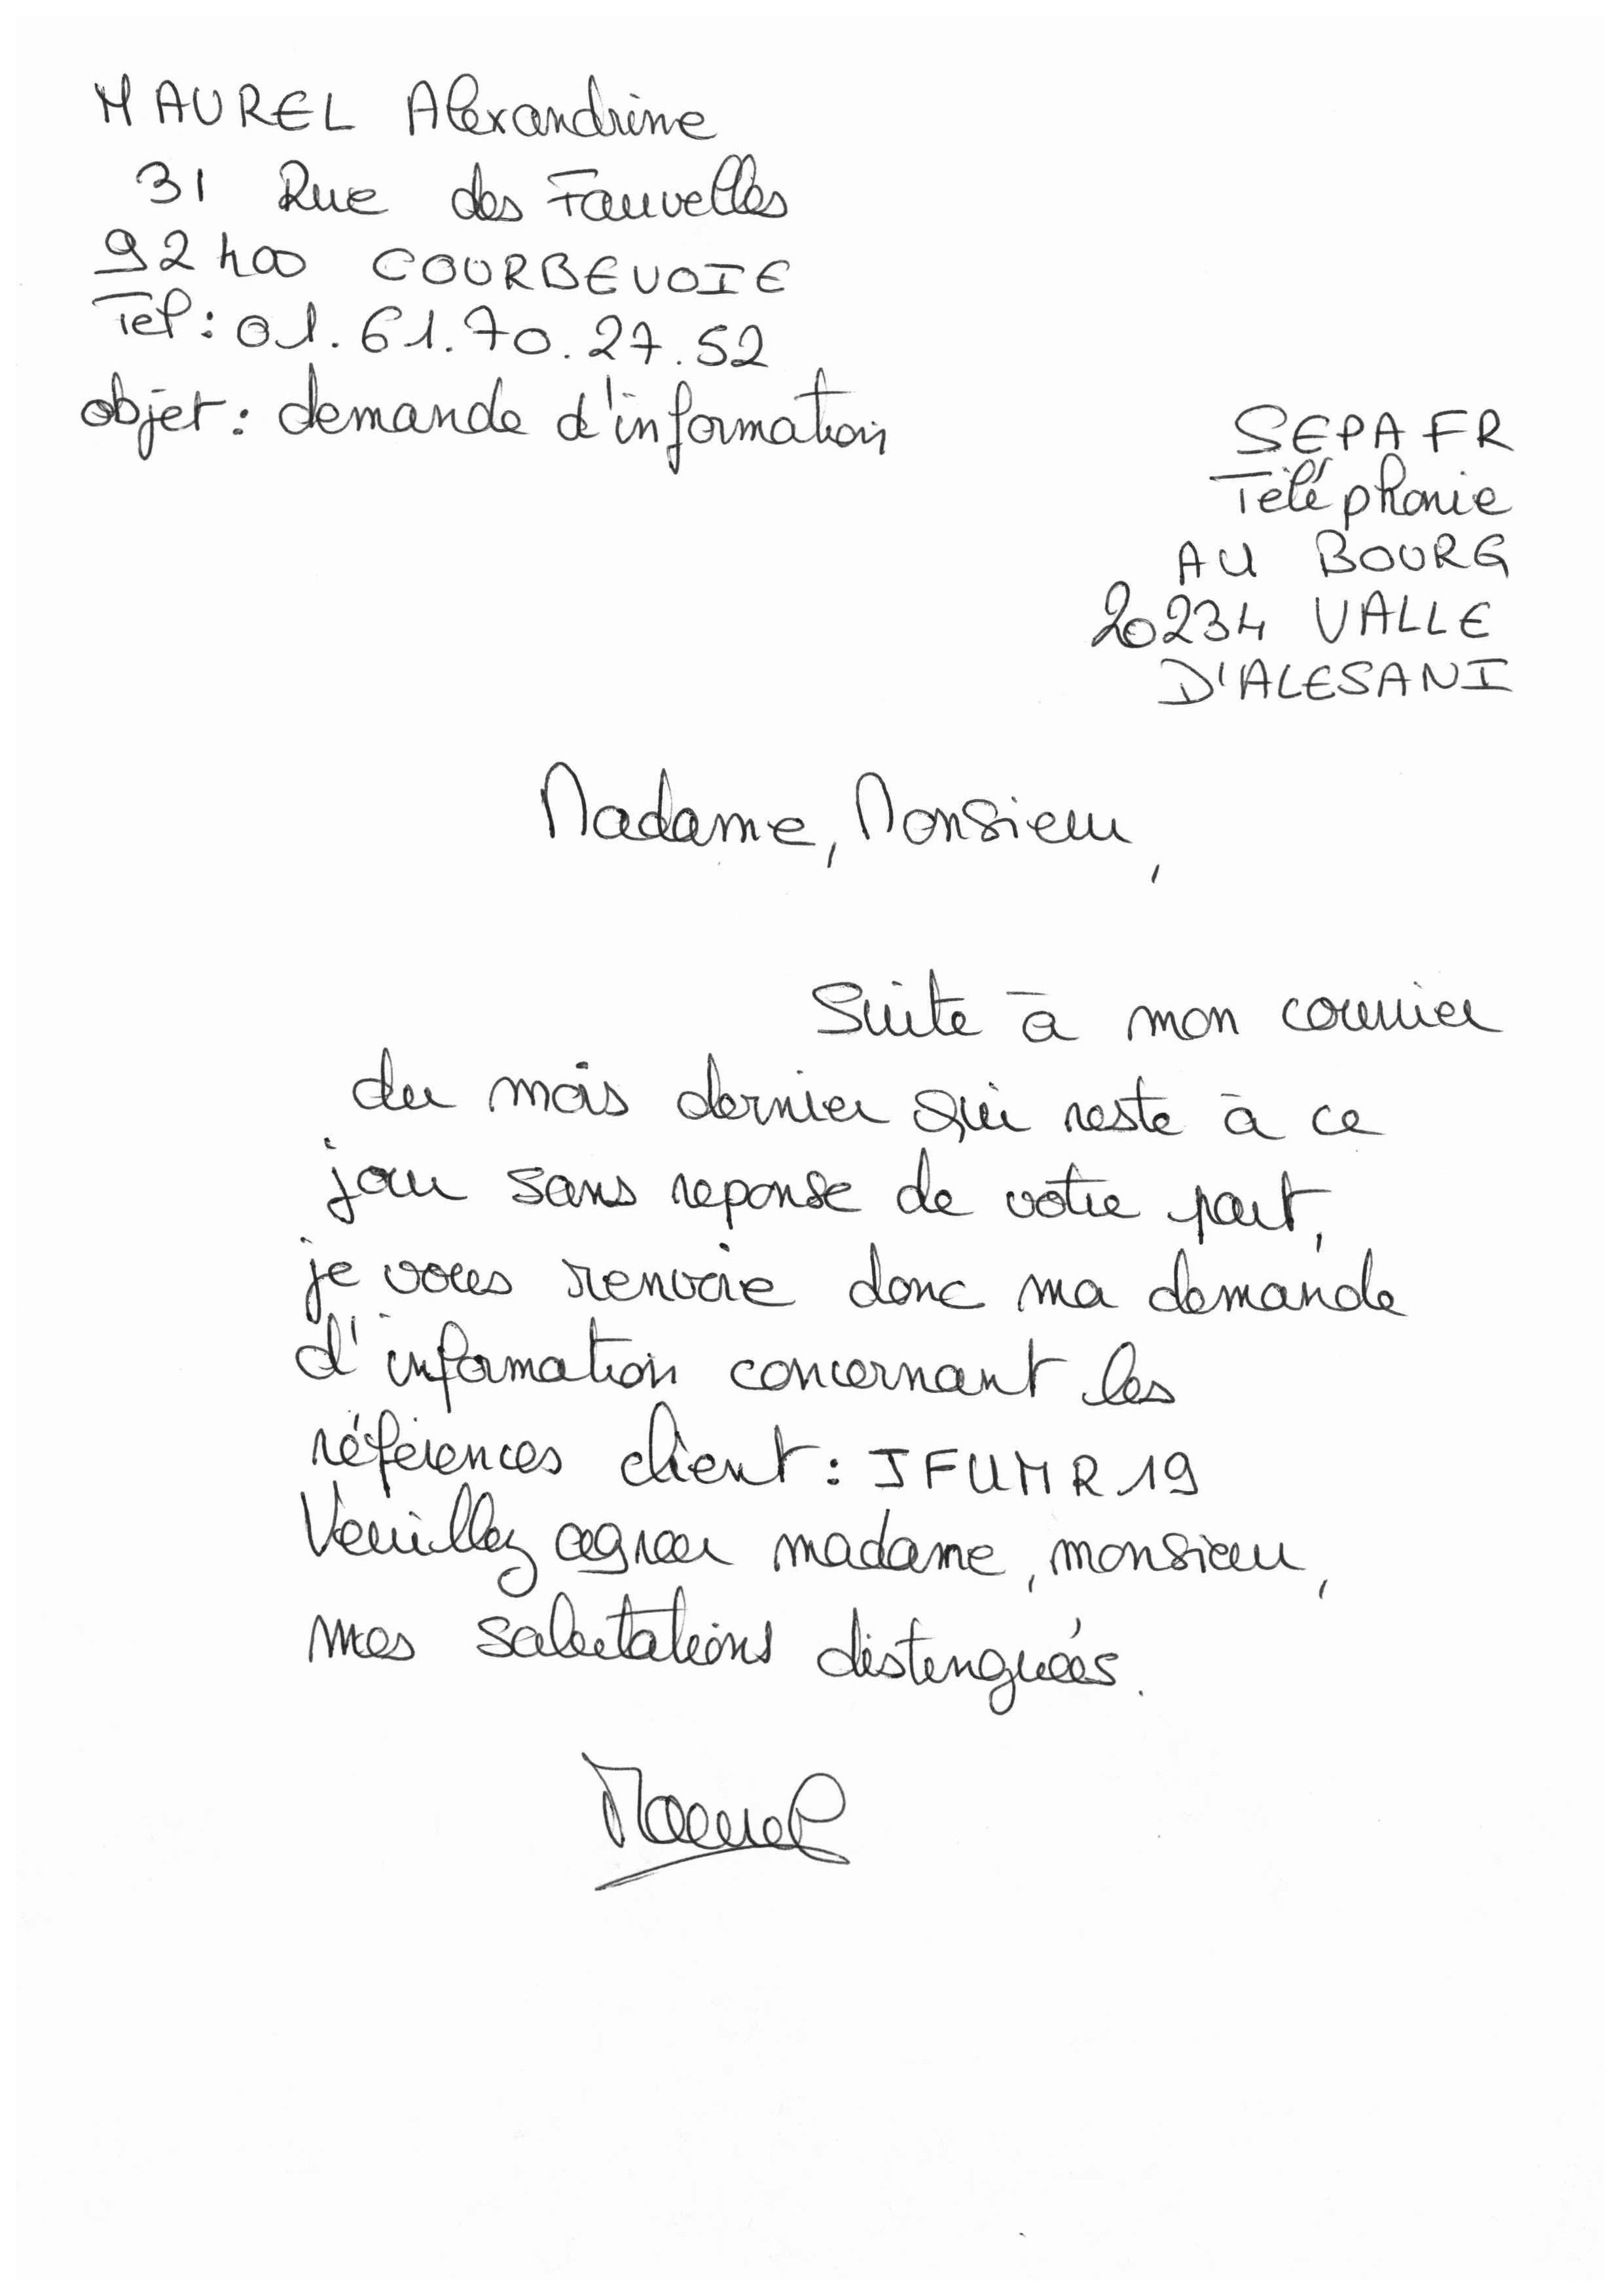 MAUREL Alexandrine
31 Rue des Fauvelles
92400 COURBEVOIE
Tel : 01.61.70.27.52
objet : demande d'information
SEPAFR
Téléphonie
AU BOURG
20234 VALLE
D'ALESANI
Madame, Monsieur,
Suite à mon courrier
du mois dernier qui reste à ce
jour sans reponse de votre part,
je vous renvoie donc ma demande
d'information concernant les
références client : JFUMR19
Veuillez agréer madame, monsieur,
mes salutations distenguées.
Maurel